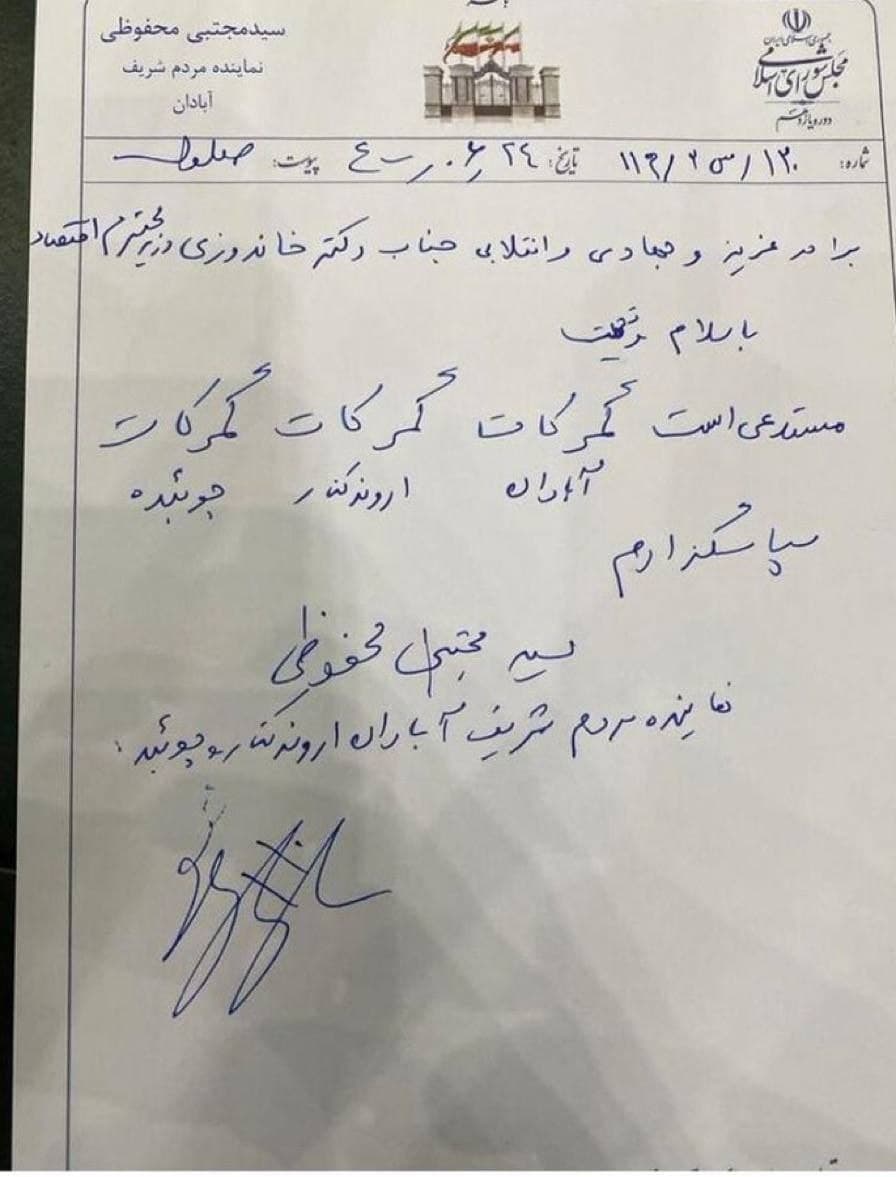 جمهوری اسلامی ایران
مجلس شورای اسلامی
دوره یازدهم
سیدمجتبی محفوظی
نماینده مردم شریف
آبادان
شماره: ۱۳۰/ تاریخ: ۲۴ پیوست:
برادر عزیز و جهادی و انقلابی جناب دکتر خاندوزی وزیر محترم اقتصاد
با سلام و تحیت
مستدعی است گمرکات گمرکات گمرکات
آبادان اروندکنار چوئبده
سپاسگزارم
سید مجتبی محفوظی
نماینده مردم شریف آبادان اروندکنار و چوئبده